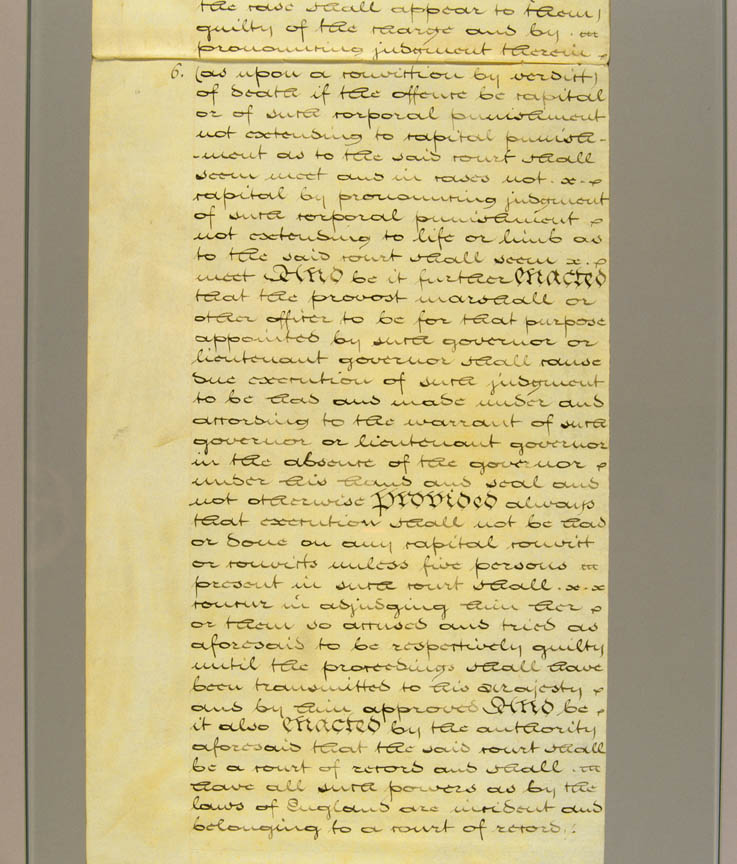 the case shall appear to them)
guilty of the charge and by
pronouncing judgment therein
6. (as upon a conviction by verdict)
of death if the offence be capital
or of such corporal punishment
not extending to capital punish-
-ment as to the said court shall
seem meet and in cases not
capital by pronouncing judgment
of such corporal punishment
not extending to life or limb as
to the said court shall seem
meet And be it further enacted
that the provost marshall or
other officer to be for that purpose
appointed by such governor or
lieutenant governor shall cause
due execution of such judgment
to be had and made under and
according to the warrant of such
governor or lieutenant governor
in the absence of the governor
under his hand and seal and
not otherwise provided always
that execution shall not be had
or done on any capital convict
or convicts unless five persons
present in such court shall
concur in adjudging him her
or them so accused and tried as
aforesaid to be respectively guilty
until the proceedings shall have
been transmitted to his Majesty
and by him approved And be
it also enacted by the authority
aforesaid that the said court shall
be a court of record and shall
have all such powers as by the
laws of England are incident and
belonging to a court of record